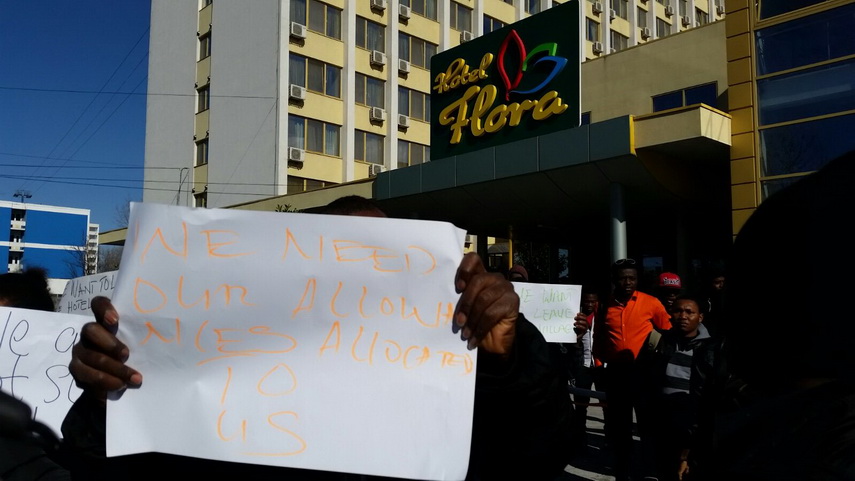 Hotel
Flora
WE NEED
OUR ALLOWA
NCES ALLOCATED
TO
US
WANT TO L
HOTEL
WANT
LEAVE